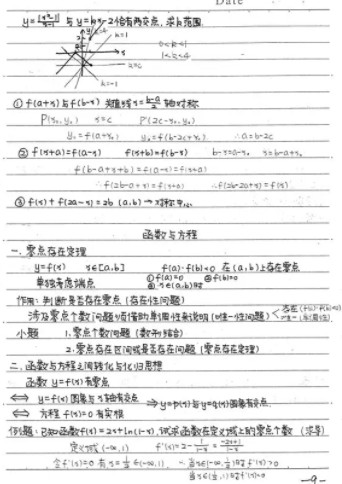 Date
y=|x²-1|/(x-1) 与 y=kx-2恰有两交点，求k范围.
k=1
0<k<1
1<k<4
k=-1
① f(a+x)与f(b-x) 关直线x=(b-a)/2 轴对称
P(x₀,y₀) x=c P'(2c-x₀,y₀)
y₀=f(a+x₀) y₀=f(b-2c+x₀) ∴a=b-2c
② f(x+a)=f(a-x) f(x+b)=f(b-x) b-x=a-x₀ x=b-a+x₀
f(b-a+x+b)=f(a-x)=f(x+a)
∴f(2b-a+x)=f(x+a) ∴f(2b-2a+x)=f(x)
③ f(x)+f(2a-x)=2b (a,b)→对称中心
函数与方程
一. 零点存在定理
y=f(x) x∈[a,b] f(a)·f(b)<0 在(a,b)上存在零点
单独考虑端点 ①f(a)=0 ②f(b)=0
作用: 判断是否存在零点 (存在性问题)
涉及零点个数问题必须借助单调性来说明 (唯一性问题)
小题 1. 零点个数问题 (数形结合)
2. 零点存在区间或是否存在问题 (零点存在定理)
二. 函数与方程之间转化与化归思想
函数 y=f(x)有零点
⟺ y=f(x)图象与x轴有交点 ⟹y=p(x)与y=q(x)图象有交点.
⟺ 方程 f(x)=0 有实根
例1题: 已知函数f(x)=2x+ln(1-x), 试求函数在定义域上的零点个数 (求导)
定义域(-∞,1) f'(x)=2-1/(1-x)=(-2x+1)/(1-x)
令f'(x)=0 有x=1/2∈(-∞,1). ∴当x∈(-∞,1/2)时f'(x)>0
当x∈(1/2,1)时f'(x)<0
-9-